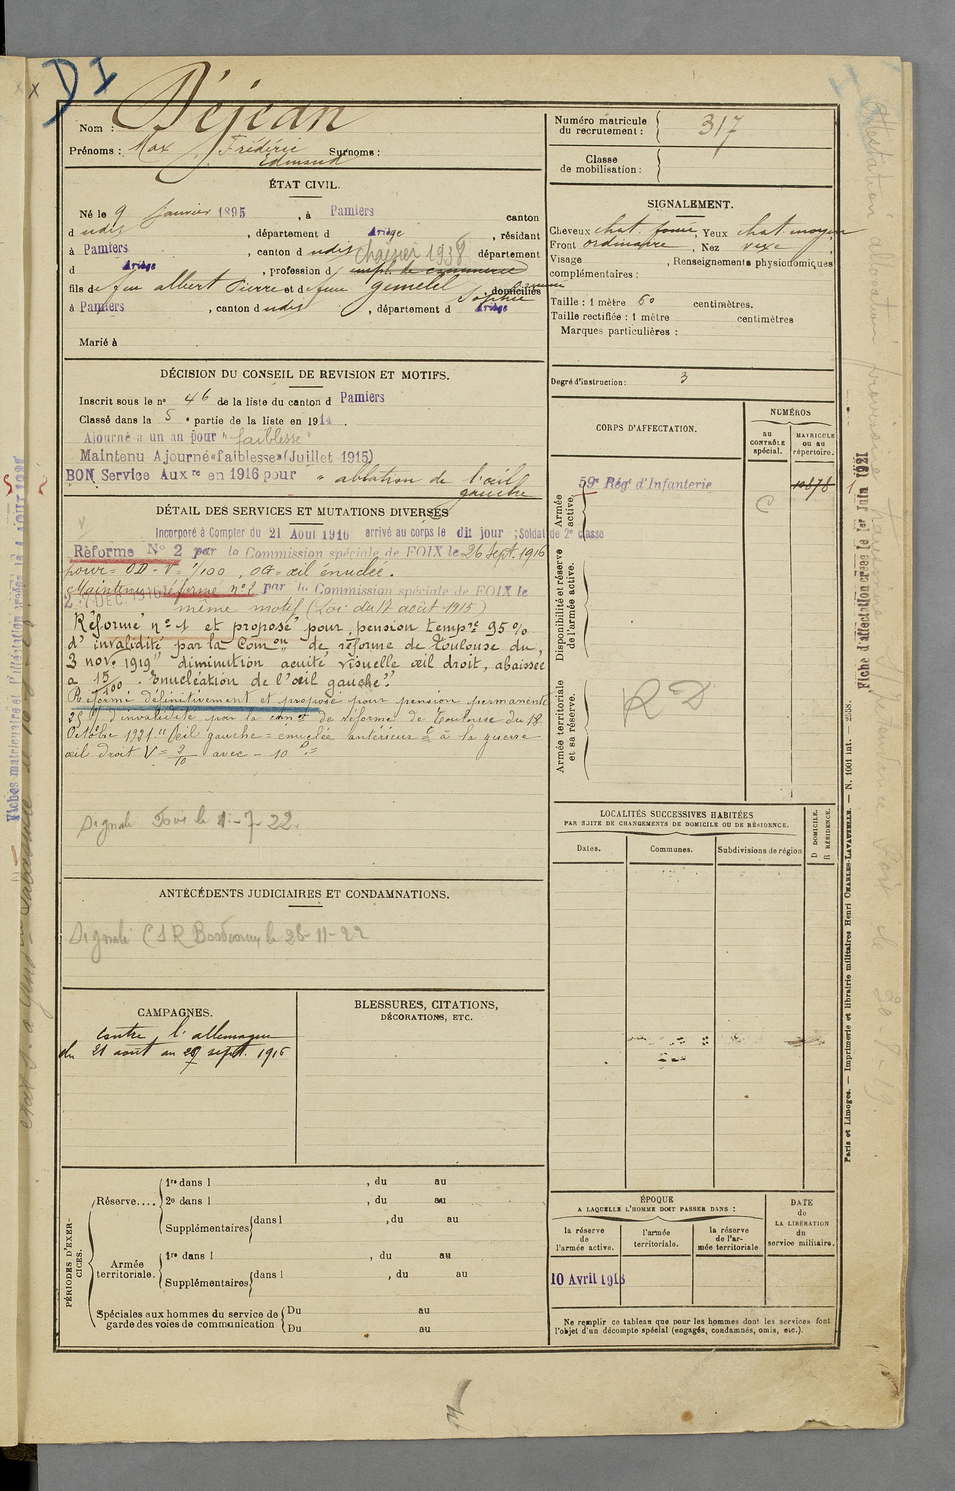 DI
Nom : Déjean
Prénoms : Max Frédéric Surnoms :
Edmond
Numéro matricule du recrutement : 317
Classe de mobilisation :
ÉTAT CIVIL.
Né le 9 Janvier 1895, à Pamiers canton
d udit, département d Ariège, résidant
à Pamiers, canton d udit Chaisier 1938 département
d Ariège, profession d empl. de commerce
fils de feu Albert Pierre et de feue Gemelel Sophie, domiciliés
à Pamiers, canton d udit, département d Ariège
Marié à
SIGNALEMENT.
Cheveux chat. foncé, Yeux chat moyen
Front ordinaire, Nez vexe
Visage , Renseignements physionomiques
complémentaires :
Taille : 1 mètre 60 centimètres.
Taille rectifiée : 1 mètre centimètres
Marques particulières :
Degré d'instruction : 3
DÉCISION DU CONSEIL DE REVISION ET MOTIFS.
Inscrit sous le n° 46 de la liste du canton d Pamiers
Classé dans la 5e partie de la liste en 1914.
Ajourné à un an pour "faiblesse"
Maintenu Ajourné «faiblesse» (Juillet 1915)
BON Service Auxre en 1916 pour "ablation de l'œil
gauche
DÉTAIL DES SERVICES ET MUTATIONS DIVERSES
Incorporé à Compter du 21 Aout 1916 arrivé au corps le dit jour ; Soldat de 2e classe
Réforme N° 2 par la Commission spéciale de FOIX le 26 Sept. 1916
pour = OD = V = /100, OG = œil énuclée.
Maintenu réforme n° 2 par la Commission spéciale de FOIX le
DEC. 1916 même motif (Loi du 17 août 1915)
Réformé n° 1 et proposé pour pension tempre 95%
d'invalidité par la Comon de réforme de Toulouse du
3 nov. 1919 "diminution acuité visuelle œil droit, abaissée
à 15/100. énucléation de l'œil gauche."
Réformé définitivement et proposé pour pension permanente
25 % d'invalidité par la con de réforme de Toulouse du 18
Octobre 1921 "Œil gauche = énuclée antérieurt à la guerre
œil droit V = 2/10 avec - 10 D =
Signalé le 1-7-22.
ANTÉCÉDENTS JUDICIAIRES ET CONDAMNATIONS.
Signalé CSR Bordeaux le 26-11-22
CAMPAGNES.
Contre l'Allemagne
du 21 août au 27 sept. 1916
BLESSURES, CITATIONS,
DÉCORATIONS, ETC.
PÉRIODES D'EXERCICES.
Réserve....
1re dans l , du au
2e dans l , du au
Supplémentaires dans l , du au
Armée territoriale.
1re dans l , du au
Supplémentaires dans l , du au
Spéciales aux hommes du service de garde des voies de communication
Du au
Du au
CORPS D'AFFECTATION.
NUMÉROS
AU CONTRÔLE spécial.
MATRICULE OU AU répertoire.
Armée active.
59e Régt d'Infanterie
C
10878
Disponibilité et réserve de l'armée active.
Armée territoriale et sa réserve.
RD
LOCALITÉS SUCCESSIVES HABITÉES
PAR SUITE DE CHANGEMENTS DE DOMICILE OU DE RÉSIDENCE.
Dates.
Communes.
Subdivisions de région
D DOMICILE.
R RÉSIDENCE.
ÉPOQUE
A LAQUELLE L'HOMME DOIT PASSER DANS :
la réserve de l'armée active.
l'armée territoriale.
la réserve de l'armée territoriale
DATE de LA LIBÉRATION du service militaire.
10 Avril 1918
Ne remplir ce tableau que pour les hommes dont les services font
l'objet d'un décompte spécial (engagés, condamnés, omis, etc.).
Paris et Limoges. — Imprimerie et librairie militaires Henri CHARLES-LAVAUZELLE. — N. 1001 int. — 2558.
Fiche d'affectation créée le 1er Juin 1921